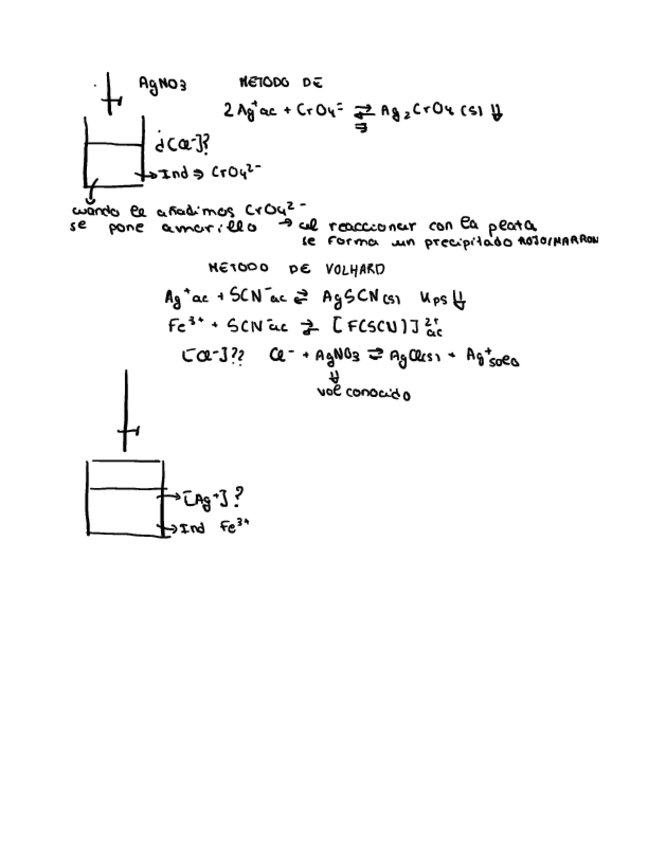 AgNO3 METODO DE
2 Ag⁺ac + CrO4⁼ ⇄ Ag2CrO4 (s) ⇓
¿[Cl-]?
→ Ind ⇒ CrO4²⁻
cuando le añadimos CrO4²⁻
se pone amarillo → al reaccionar con la plata
se forma un precipitado ROJO/MARRON
METODO DE VOLHARD
Ag⁺ac + SCN⁻ac ⇄ AgSCN(s) Kps ⇓
Fe³⁺ + SCN⁻ac ⇄ [F(SCN)]²⁺ac
[Cl-]?? Cl⁻ + AgNO3 ⇄ AgCl(s) + Ag⁺solo
⇓
vol conocido
→ [Ag⁺]?
→ Ind Fe³⁺